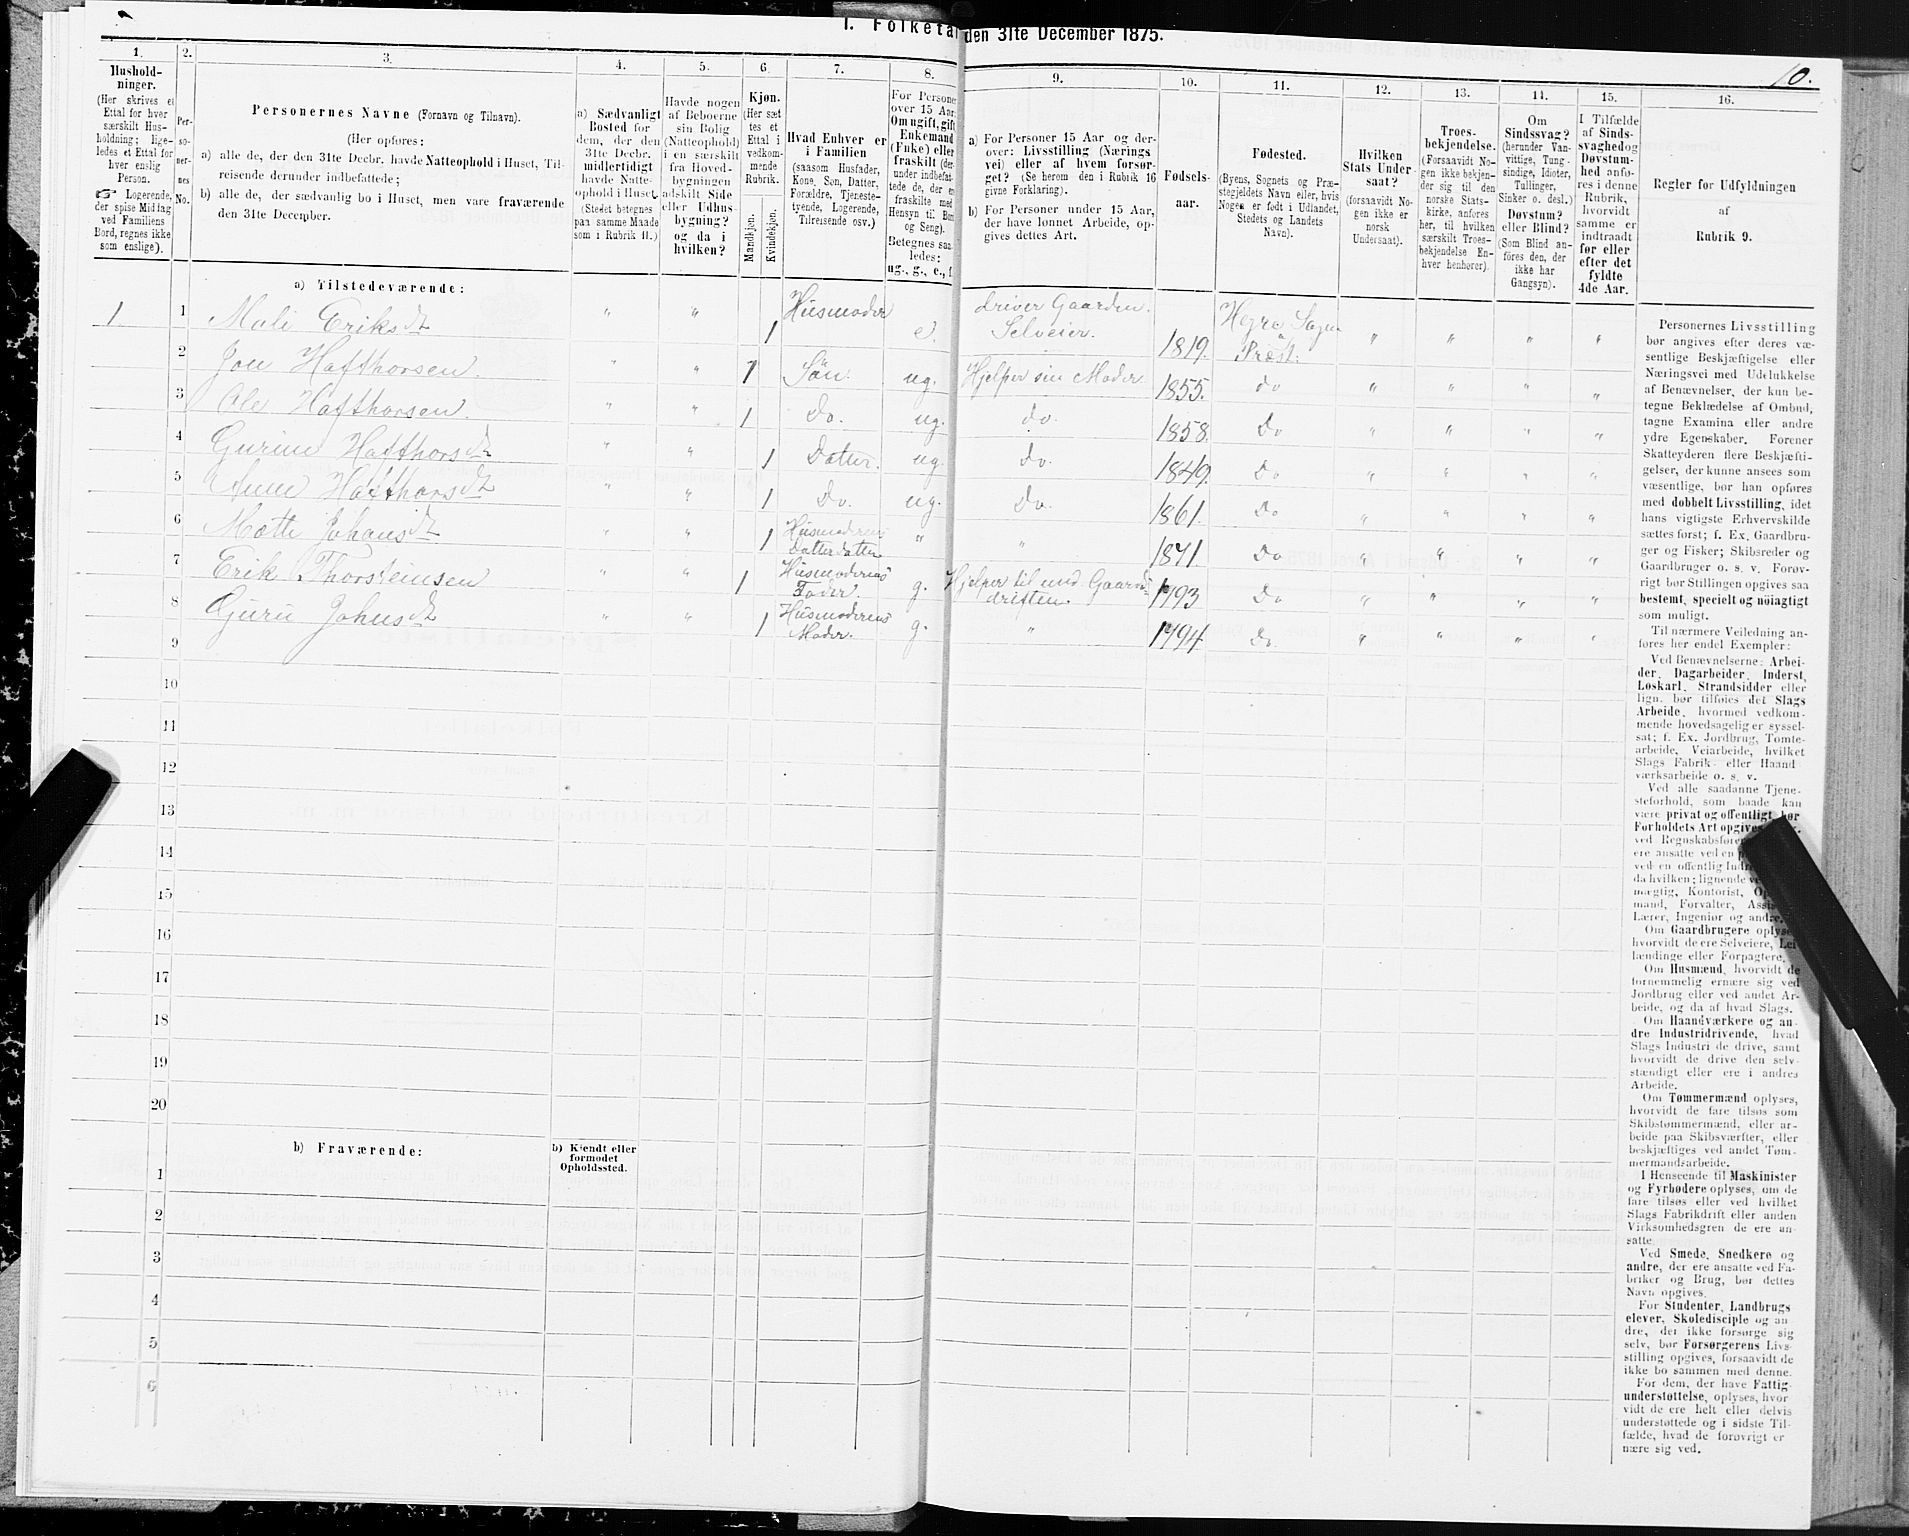 I. Folketal den 31te December 1875.
10.
1.
2.
3.
4.
5.
6.
7.
8.
9.
10.
11.
12.
13.
14.
15.
16.
Hushold-
ninger.
(Her skrives et
Ettal for hver
særskilt Hus-
holdning; lige-
ledes et Ettal for
hver enslig
Person.
☞ Logerende,
der spise Middag
ved Familiens
Bord, regnes ikke
som enslige).
Per-
so-
ner-
nes
No.
Personernes Navne (Fornavn og Tilnavn).
(Her opføres:
a) alle de, der den 31te Decbr. havde Natteophold i Huset, Til-
reisende derunder indbefattede;
b) alle de, der sædvanlig bo i Huset, men vare fraværende
den 31te December.
a) Sædvanligt
Bosted for
dem, der den
31te Decbr.
midlertidigt
havde Natte-
ophold i Huset.
(Stedet betegnes
paa samme Maade
som i Rubrik 11.)
Havde nogen
af Beboerne
sin Bolig
(Natteophold)
i en særskilt
fra Hoved-
bygningen
adskilt Side
eller Udhus-
bygning?
og da i
hvilken?
Kjøn.
(Her sæt
tes et
Ettal i
vedkom-
mende
Rubrik.
Mandkjøn.
Kvindekjøn.
Hvad Enhver er
i Familien
(saasom Husfader,
Kone, Søn, Datter,
Forældre, Tjeneste-
tyende, Logerende,
Tilreisende osv.)
For Personer
over 15 Aar:
Om ugift, gift,
Enkemand
(Enke) eller
fraskilt (der-
under indbefat-
tede de, der er
fraskilte med
Hensyn til Bord
og Seng).
Betegnes saa-
ledes:
ug., g., e., f.
a) For Personer 15 Aar og der-
over: Livsstilling (Nærings
vei) eller af hvem forsør-
get? (Se herom den i Rubrik 16
givne Forklaring).
b) For Personer under 15 Aar,
der have lønnet Arbeide, op-
gives dettes Art.
Fødsels-
aar.
Fødested.
(Byens, Sognets og Præ-
stegjeldets Navn eller, hvis
Nogen er født i Udlandet,
Stedets og Landets
Navn).
Hvilken
Stats Under
saat?
(forsaavidt No-
gen ikke er
norsk
Undersaat).
Troes-
bekjendelse.
(Forsaavidt No-
gen ikke bekjen-
der sig til den
norske Stats-
kirke, anføres
her, til hvilken
særskilt Troes-
bekjendelse En-
hver henhører).
Om
Sindssvag?
(herunder Van-
vittige, Tung-
sindige, Idioter,
Tullinger,
Sinker o. desl.)
Døvstum?
eller Blind?
(Som Blind an-
føres den, der
ikke har
Gangsyn).
I Tilfælde
af Sinds-
svaghed og
Døvstum-
hed anfø-
res i denne
Rubrik,
hvorvidt
samme er
indtraadt
før eller
efter det
fyldte
4de Aar.
Regler for Udfyldningen
af
Rubrik 9.
a) Tilstedeværende:
1 1 Mali Eriksdt " " 1 Husmoder e. driver Gaarden. Selveier. 1819. Hegre Sogn & Præst: " " " "
2 Jon Hafthorsen. " " 1 Sön. ug. Hjelper sin Moder 1855. do " " " "
3 Ole Hafthorsen. " " 1 Do. ug. do. 1858. Do " " " "
4 Gurine Hafthorsdt " " 1 Datter. ug. do. 1849. Do " " " "
5 Anne Hafthorsdt " " 1 Do. ug. Do. 1861. Do " " " "
6 Mette Johansdt " " 1 Husmoderens Datterdatter " " 1871. Do " " " "
7 Erik Thorsteinsen " " 1 Husmoderens Fader. g. Hjelper til med Gaards- driften. 1793 Do " " " "
8 Guru Johnsdt " " 1 Husmoderens Moder. g. " 1794. Do. " " " "
9
10
11
12
13
14
15
16
17
18
19
20
b) Fraværende:
b) Kjendt eller
formodet
Opholdssted.
1
2
3
4
5
6
Personernes Livsstilling
bør angives efter deres væ-
sentlige Beskjæftigelse eller
Næringsvei med Udelukkelse
af Benævnelser, der kun be-
tegne Beklædelse af Ombud,
tagne Examina eller andre
ydre Egenskaber. Forener
Skatteyderen flere Beskjæfti-
gelser, der kunne ansees som
væsentlige, bør han opføres
med dobbelt Livsstilling, idet
hans vigtigste Erhvervskilde
sættes først; f. Ex. Gaardbru-
ger og Fisker; Skibsreder og
Gaardbruger o. s. v. Forøv-
rigt bør Stillingen opgives saa
bestemt, specielt og nøiagtigt
som muligt.
Til nærmere Veiledning an-
føres her endel Exempler:
Ved Benævnelserne: Arbei-
der, Dagarbeider, Inderst,
Løskarl, Strandsidder eller
lign. bør tilføies det Slags
Arbeide, hvormed vedkom-
mende hovedsagelig er syssel-
sat; f. Ex. Jordbrug, Tomte-
arbeide, Veiarbeide, hvilket
Slags Fabrik- eller Haand
værksarbeide o. s. v.
Ved alle saadanne Tjene-
steforhold, som baade kan
være privat og offentligt, bør
Forholdets Art opgives,
ved Regnskabsfører
ere ansatte ved en
ved en offentlig
da hvilken; lignende
mægtig, Kontorist,
mand, Forvalter,
Lærer, Ingeniør og andre.
Om Gaardbrugere oplyses,
hvorvidt de ere Selveiere, Lei-
lændinge eller Forpagtere.
Om Husmænd, hvorvidt de
fornemmelig ernære sig ved
Jordbrug eller ved andet Ar-
beide, og da af hvad Slags.
Om Haandværkere og an-
dre Industridrivende, hvad
Slags Industri de drive, samt
hvorvidt de drive den selv-
stændigt eller ere i andres
Arbeide.
Om Tømmermænd oplyses,
hvorvidt de fare tilsøs som
Skibstømmermænd, eller ar-
beide paa Skibsværfter, eller
beskjæftiges ved andet Tøm-
mermandsarbeide.
I Henseende til Maskinister
og Fyrbødere oplyses, om de
fare tilsøs eller ved hvilket
Slags Fabrikdrift eller anden
Virksomhedsgren de ere an-
satte.
Ved Smede, Snedkere og
andre, der ere ansatte ved Fa-
briker og Brug, bør dettes
Navn opgives.
For Studenter, Landbrugs
elever, Skoledisciple og an
dre, der ikke forsørge sig
selv, bør Forsørgerens Livs-
stilling opgives, forsaavidt de
ikke bo sammen med denne.
For dem, der have Fattig
understøttelse, oplyses, hvor
vidt de ere helt eller delvis
understøttede og i sidste Til-
fælde, hvad de forøvrigt er
nære sig ved.